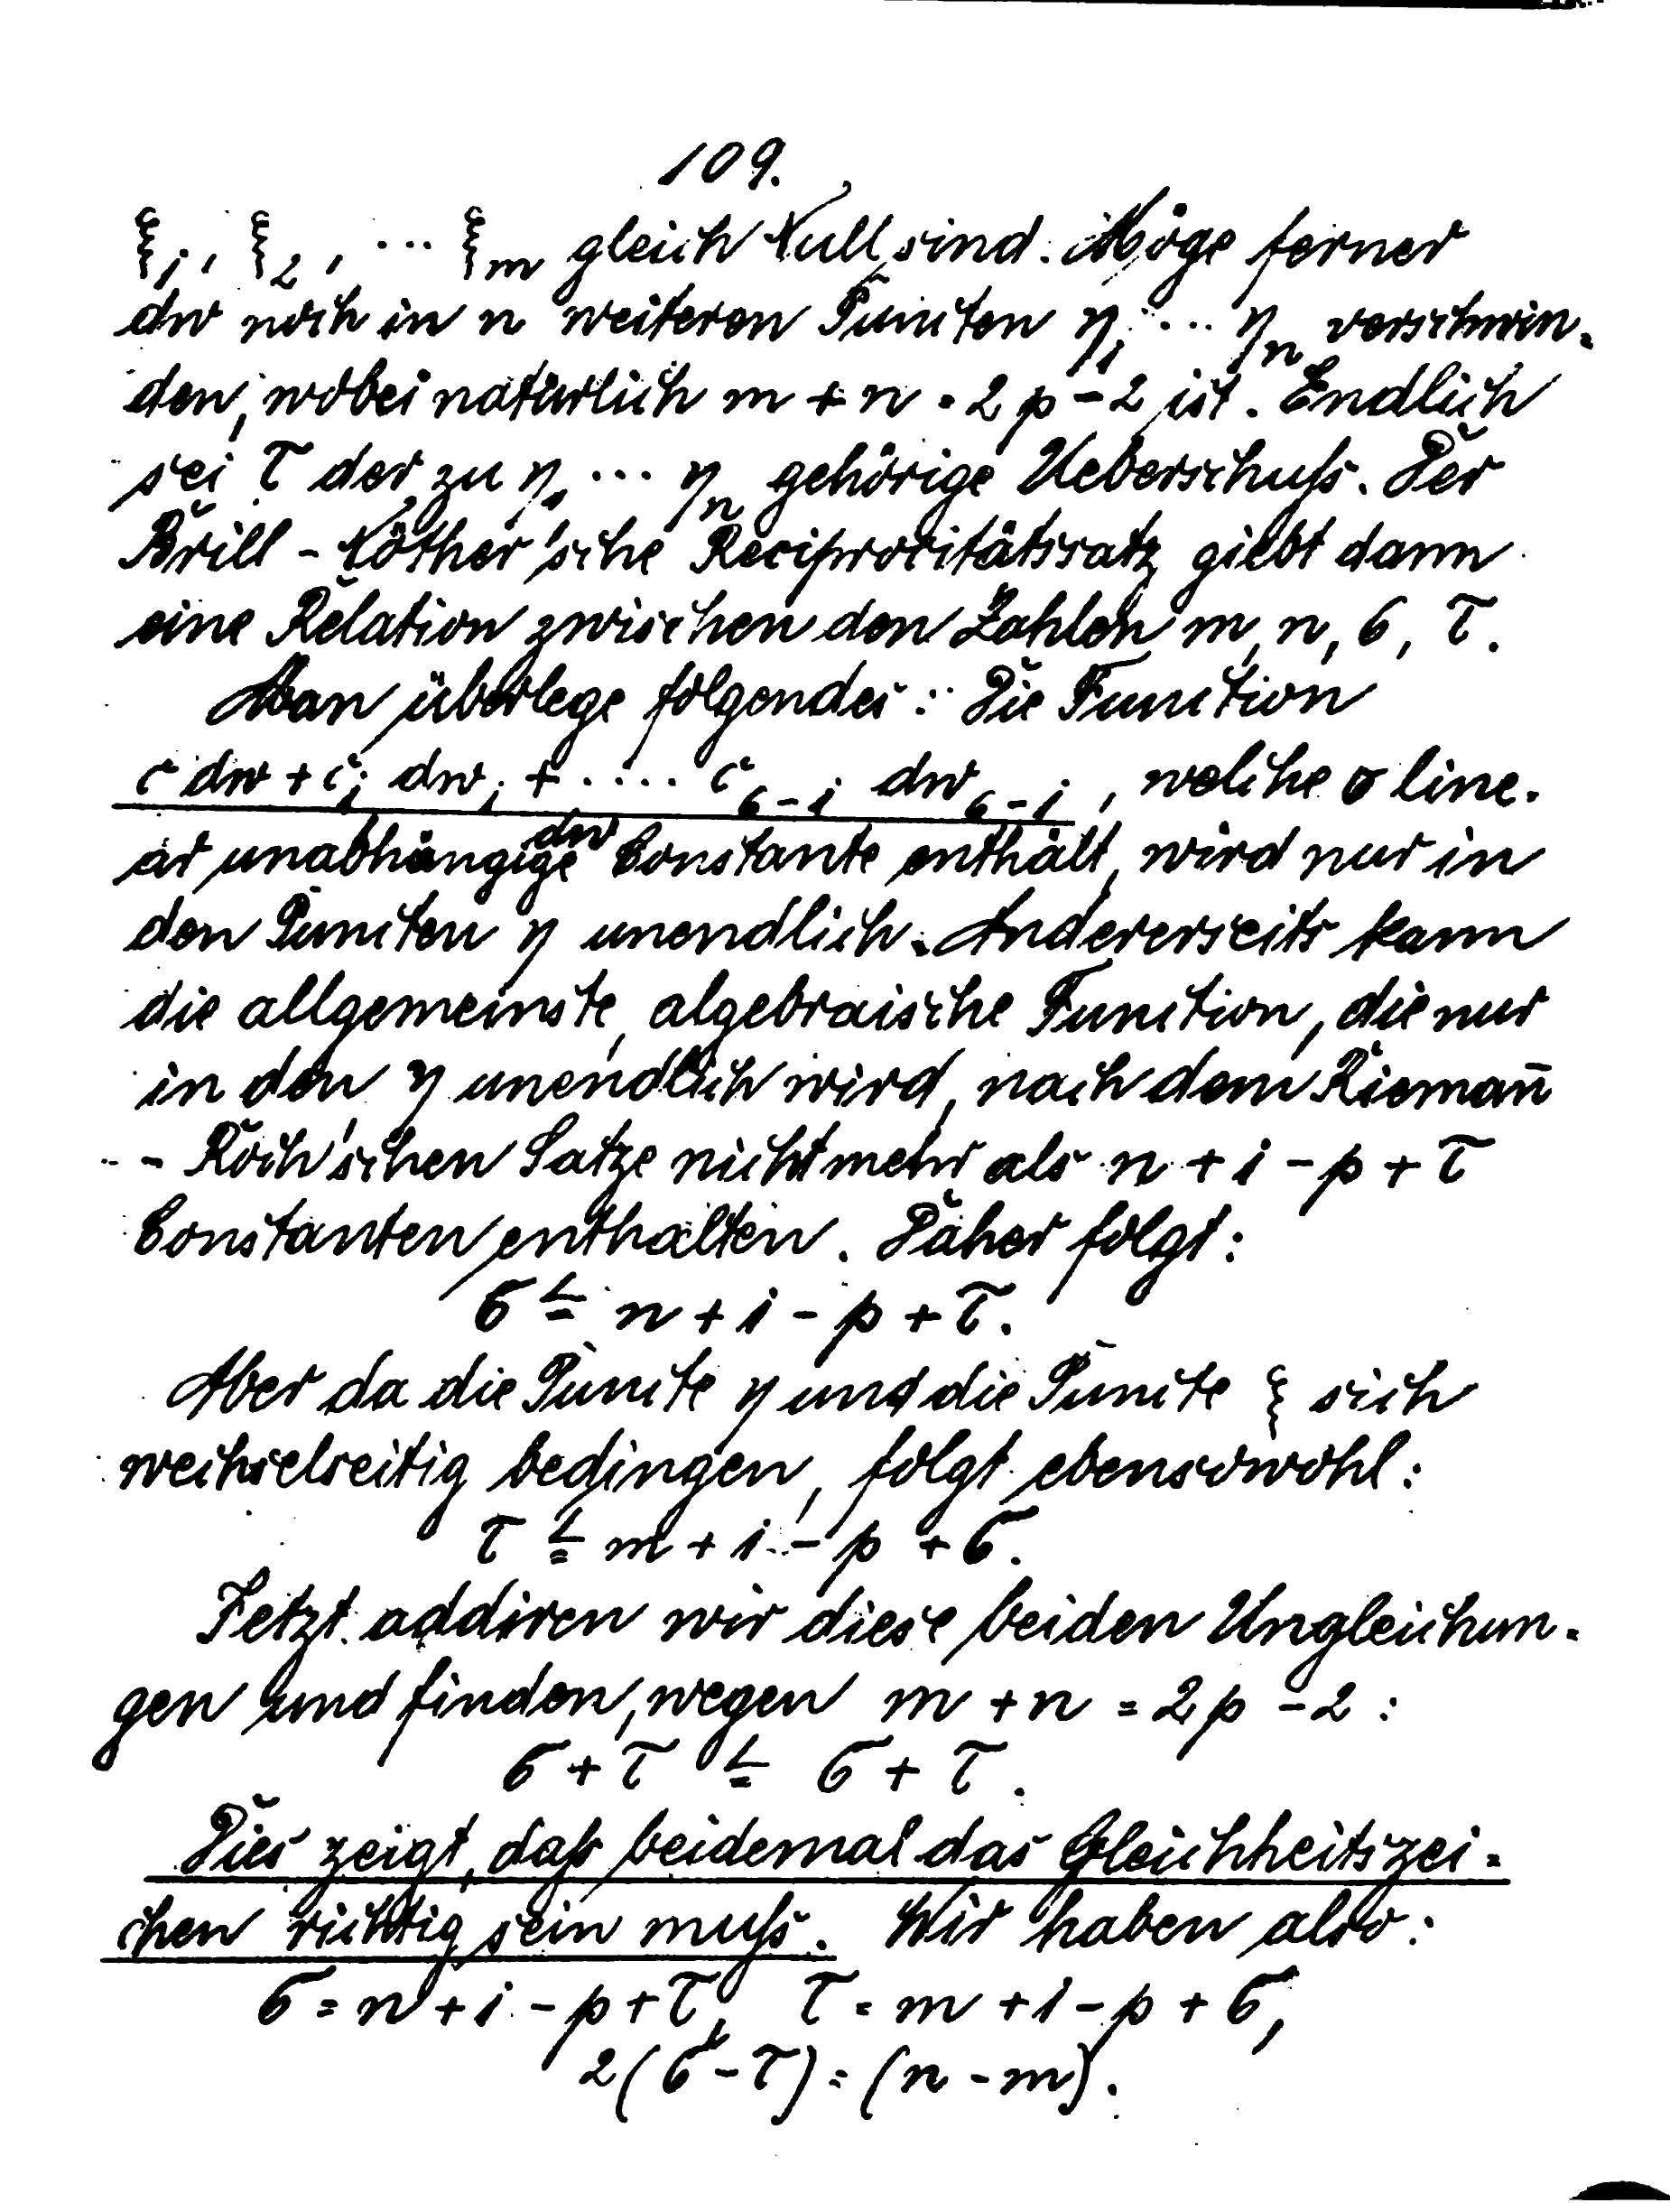 109.
ξ₁, ξ₂, ... ξₘ gleich Null sind. Möge ferner
dw noch in n weiteren Puncten η₁ ... ηₙ verschwin-
den, wobei natürlich m + n = 2p - 2 ist. Endlich
sei τ der zu η₁ ... ηₙ gehörige Ueberschuss. Der
Brill-Nöther'sche Reciprocitätssatz giebt dann
eine Relation zwischen den Zahlen m, n, σ, τ.
Man überlege folgendes: Die Function
c dw + c₁ dw₁ + .... c_{σ-1} dw_{σ-1}, welche σ line-
dw
ar unabhängige Constante enthält, wird nur in
den Puncten η unendlich. Andererseits kann
die allgemeinste, algebraische Function, die nur
in den η unendlich wird, nach dem Riemañ
- Roch'schen Satze nicht mehr als n + 1 - p + τ
Constanten enthalten. Daher folgt:
σ ≤ n + 1 - p + τ.
Aber da die Puncte η und die Puncte ξ sich
wechselseitig bedingen, folgt ebensowohl:
τ ≤ m + 1 - p + σ.
Jetzt addiren wir diese beiden Ungleichun-
gen und finden, wegen m + n = 2p - 2:
σ + τ ≤ σ + τ.
Dies zeigt, dass beidemal das Gleichheitszei-
chen richtig sein muss. Wir haben also:
σ = n + 1 - p + τ, τ = m + 1 - p + σ,
2(σ - τ) = (n - m).